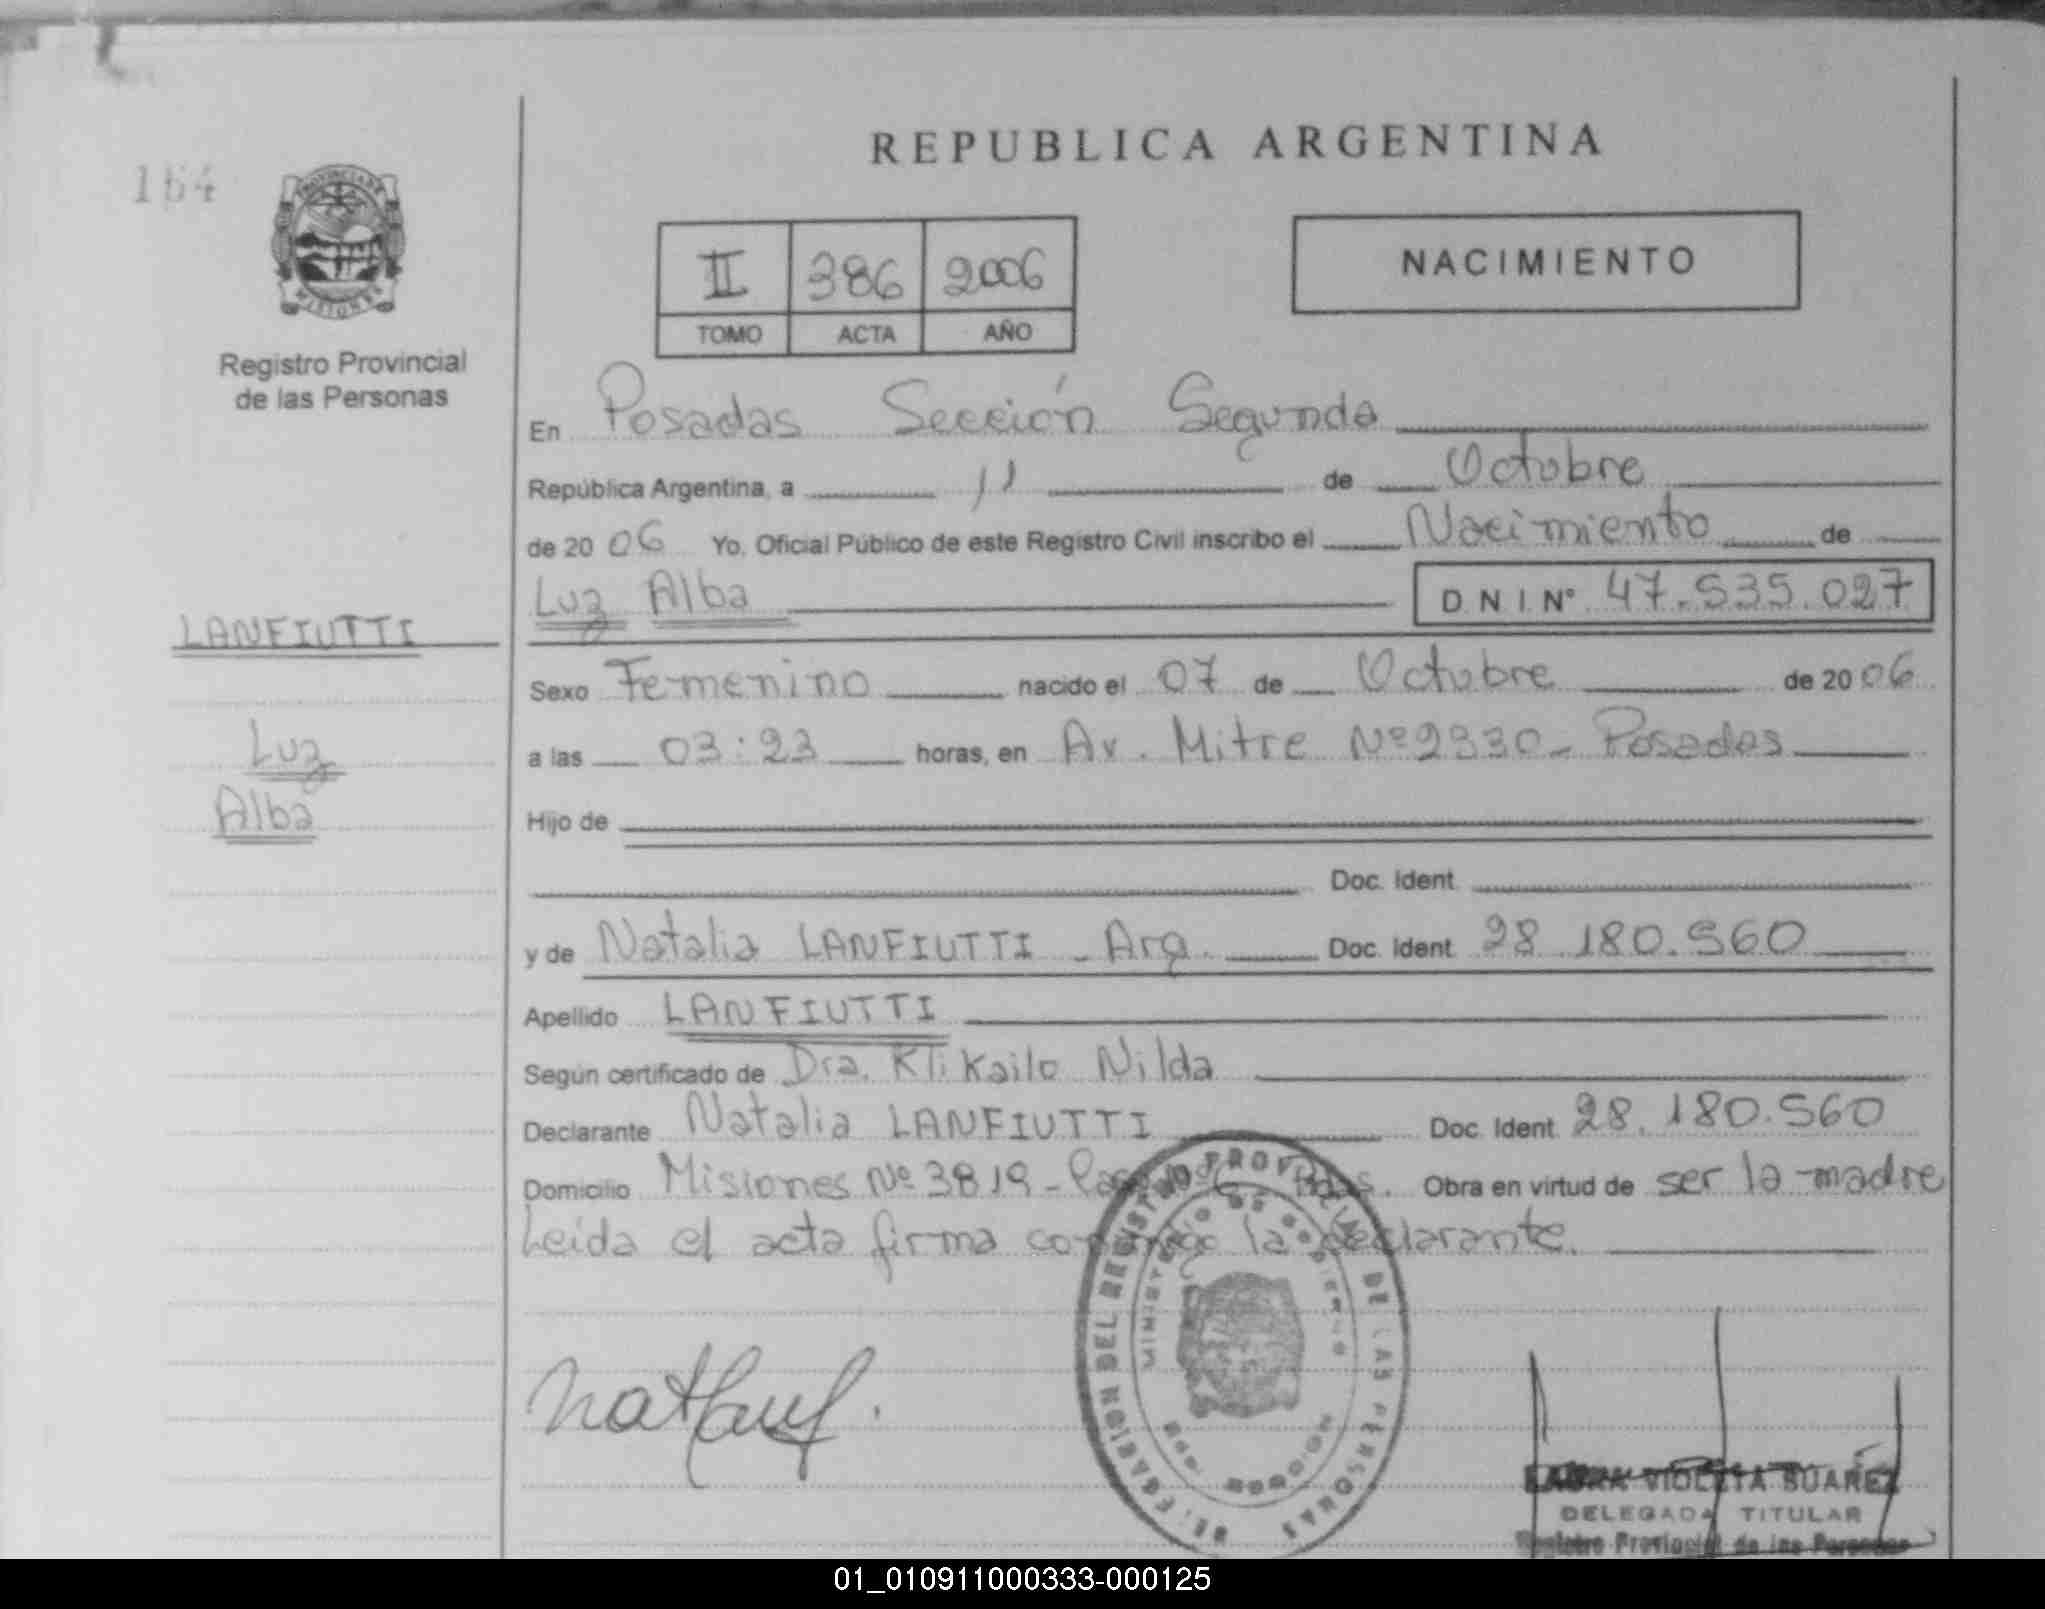 REPUBLICA ARGENTINA
164
II 386 2006
TOMO ACTA AÑO
NACIMIENTO
Registro Provincial
de las Personas
En Posadas Sección Segunda
República Argentina, a 11 de Octubre
de 20 06 Yo, Oficial Público de este Registro Civil inscribo el Nacimiento de
Luz Alba D.N.I. Nº 47.535.027
LANFIUTTI
Luz
Alba
Sexo Femenino nacido el 07 de Octubre de 20 06
a las 03:23 horas, en Av. Mitre Nº 2330 - Posadas
Hijo de
Doc. Ident.
y de Natalia LANFIUTTI - Arg. Doc. Ident. 28.180.560
Apellido LANFIUTTI
Según certificado de Dra. Nilda
Declarante Natalia LANFIUTTI Doc. Ident. 28.180.560
Domicilio Misiones Nº 3819 - Pdas. Obra en virtud de ser la madre
Leída el acta firma conmigo la declarante.
DELEGACION DEL REGISTRO PROVINCIAL DE LAS PERSONAS
MINISTERIO DE GOBIERNO
LAURA VIOLETA SUAREZ
DELEGADA TITULAR
Registro Provincial de las Personas
01_010911000333-000125